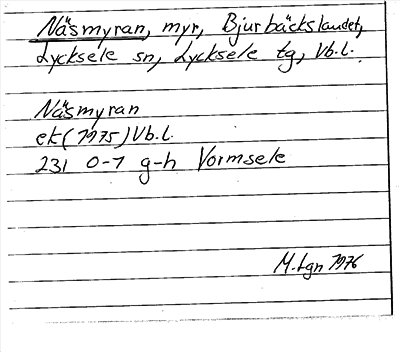 Näsmyran, myr, Bjurbäckslandet,
Lycksele sn, Lycksele tg, Vb.l.
Näsmyran
ek (1975) Vb.l.
231 0-1 g-h Vormsele
M. Lgn 1976